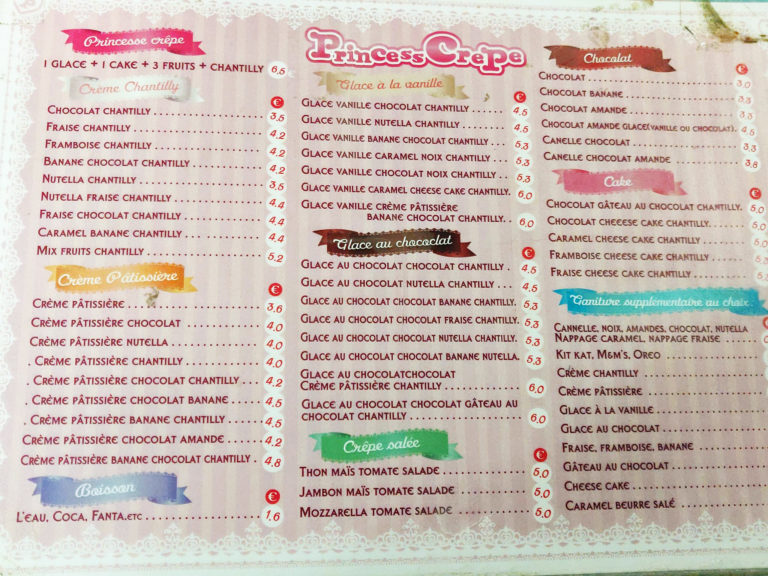 Princess Crepe
Princesse crêpe
1 glace + 1 cake + 3 fruits + chantilly 6,5
Crème Chantilly
€
Chocolat chantilly 3,5
Fraise chantilly 4,2
Framboise chantilly 4,2
Banane chocolat chantilly 4,2
Nutella chantilly 3,5
Nutella fraise chantilly 4,4
Fraise chocolat chantilly 4,4
Caramel banane chantilly 4,4
Mix fruits chantilly 5,2
Crème Pâtissière
€
Crème pâtissière 3,6
Crème pâtissière chocolat 4,0
Crème pâtissière nutella 4,0
. Crème pâtissière chantilly 4,0
. Crème pâtissière chocolat chantilly 4,2
. Crème pâtissière chocolat banane 4,5
. Crème pâtissière banane chantilly 4,5
Crème pâtissière chocolat amande 4,2
Crème pâtissière banane chocolat chantilly . 4,8
Boisson
€
L'eau, Coca, Fanta,etc 1,6
Glace à la vanille
€
Glace vanille chocolat chantilly 4,5
Glace vanille nutella chantilly 4,5
Glace vanille banane chocolat chantilly 5,3
Glace vanille caramel noix chantilly 5,3
Glace vanille chocolat noix chantilly 5,3
Glace vanille caramel cheese cake chantilly. 6,0
Glace vanille crème pâtissière
banane chocolat chantilly. 6,0
Glace au chococlat
€
Glace au chocolat chocolat chantilly . 4,5
Glace au chocolat nutella chantilly 4,5
Glace au chocolat chocolat banane chantilly. 5,3
Glace au chocolat chocolat fraise chantilly. 5,3
Glace au chocolat chocolat nutella chantilly. 5,3
Glace au chocolat chocolat banane nutella. 5,3
Glace au chocolatchocolat
Crème pâtissière chantilly 6,0
Glace au chocolat chocolat gâteau au
chocolat chantilly 6,0
Crêpe salée
€
Thon maïs tomate salade 5,0
Jambon maïs tomate salade 5,0
Mozzarella tomate salade 5,0
Chocolat
€
Chocolat 3,0
Chocolat banane 3,8
Chocolat amande
Chocolat amande glace(vanille ou chocolat). 4,5
Canelle chocolat
Canelle chocolat amande 3,8
Cake
€
Chocolat gâteau au chocolat chantilly. 5,0
Chocolat cheeese cake chantilly 5,0
Caramel cheese cake chantilly 5,0
Framboise cheese cake chantilly 5,0
Fraise cheese cake chantilly 5,0
Ganiture supplementaire au choix
Cannelle, noix, amandes, chocolat, nutella
Nappage caramel, nappage fraise
Kit kat, M&M's, Oreo
Crème chantilly
Crème pâtissière
Glace à la vanille
Glace au chocolat
Fraise, framboise, banane
Gâteau au chocolat
Cheese cake
Caramel beurre salé